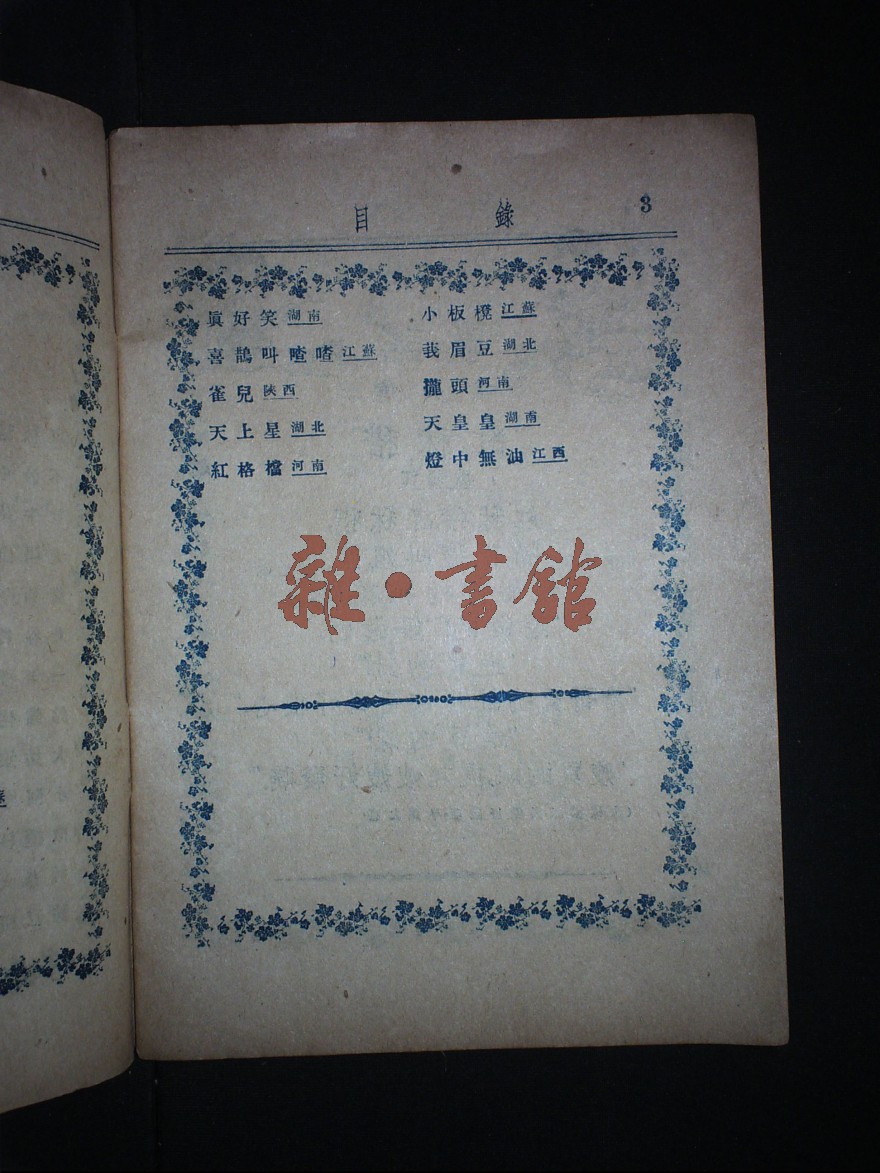 目錄 3
眞好笑 湖南
喜鵲叫喳喳 江蘇
雀兒 陝西
天上星 湖北
紅格檔 河南
小板櫈 江蘇
莪眉豆 湖北
攏頭 河南
天皇皇 湖南
燈中無油 江西
雜·書館